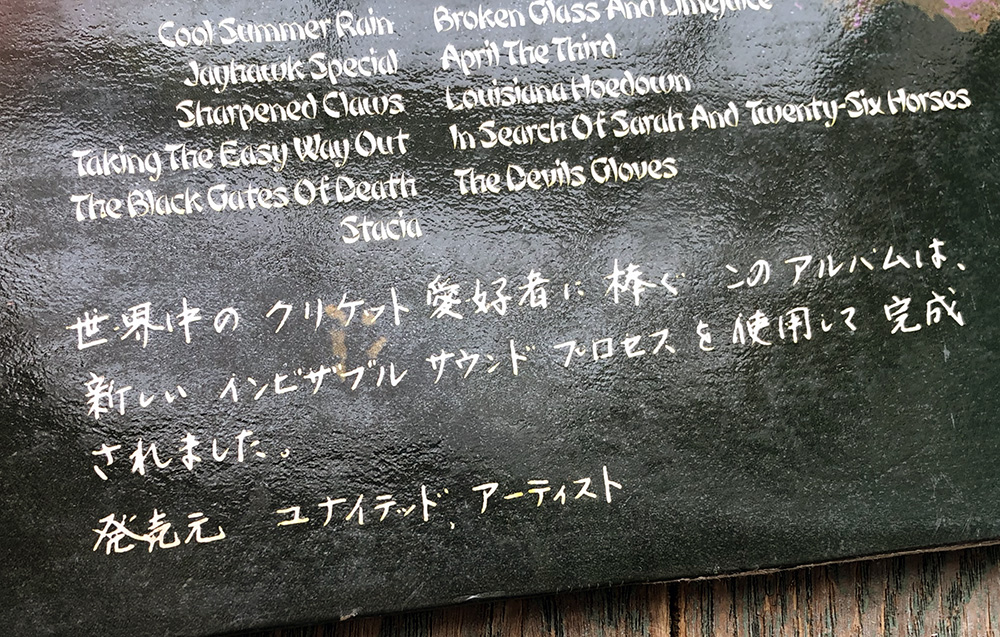 Cool Summer Rain
Jayhawk Special
Sharpened Claws
Taking The Easy Way Out
The Black Gates Of Death
Stacia
Broken Glass And Limejuice
April The Third
Louisiana Hoedown
In Search Of Sarah And Twenty-Six Horses
The Devils Gloves
世界中の クリケット 愛好者に 棒ぐ このアルバムは、
新しい インビザブル サウンド プロセス を 使用して 完成
されました。
発売元 ユナイテッド, アーティスト